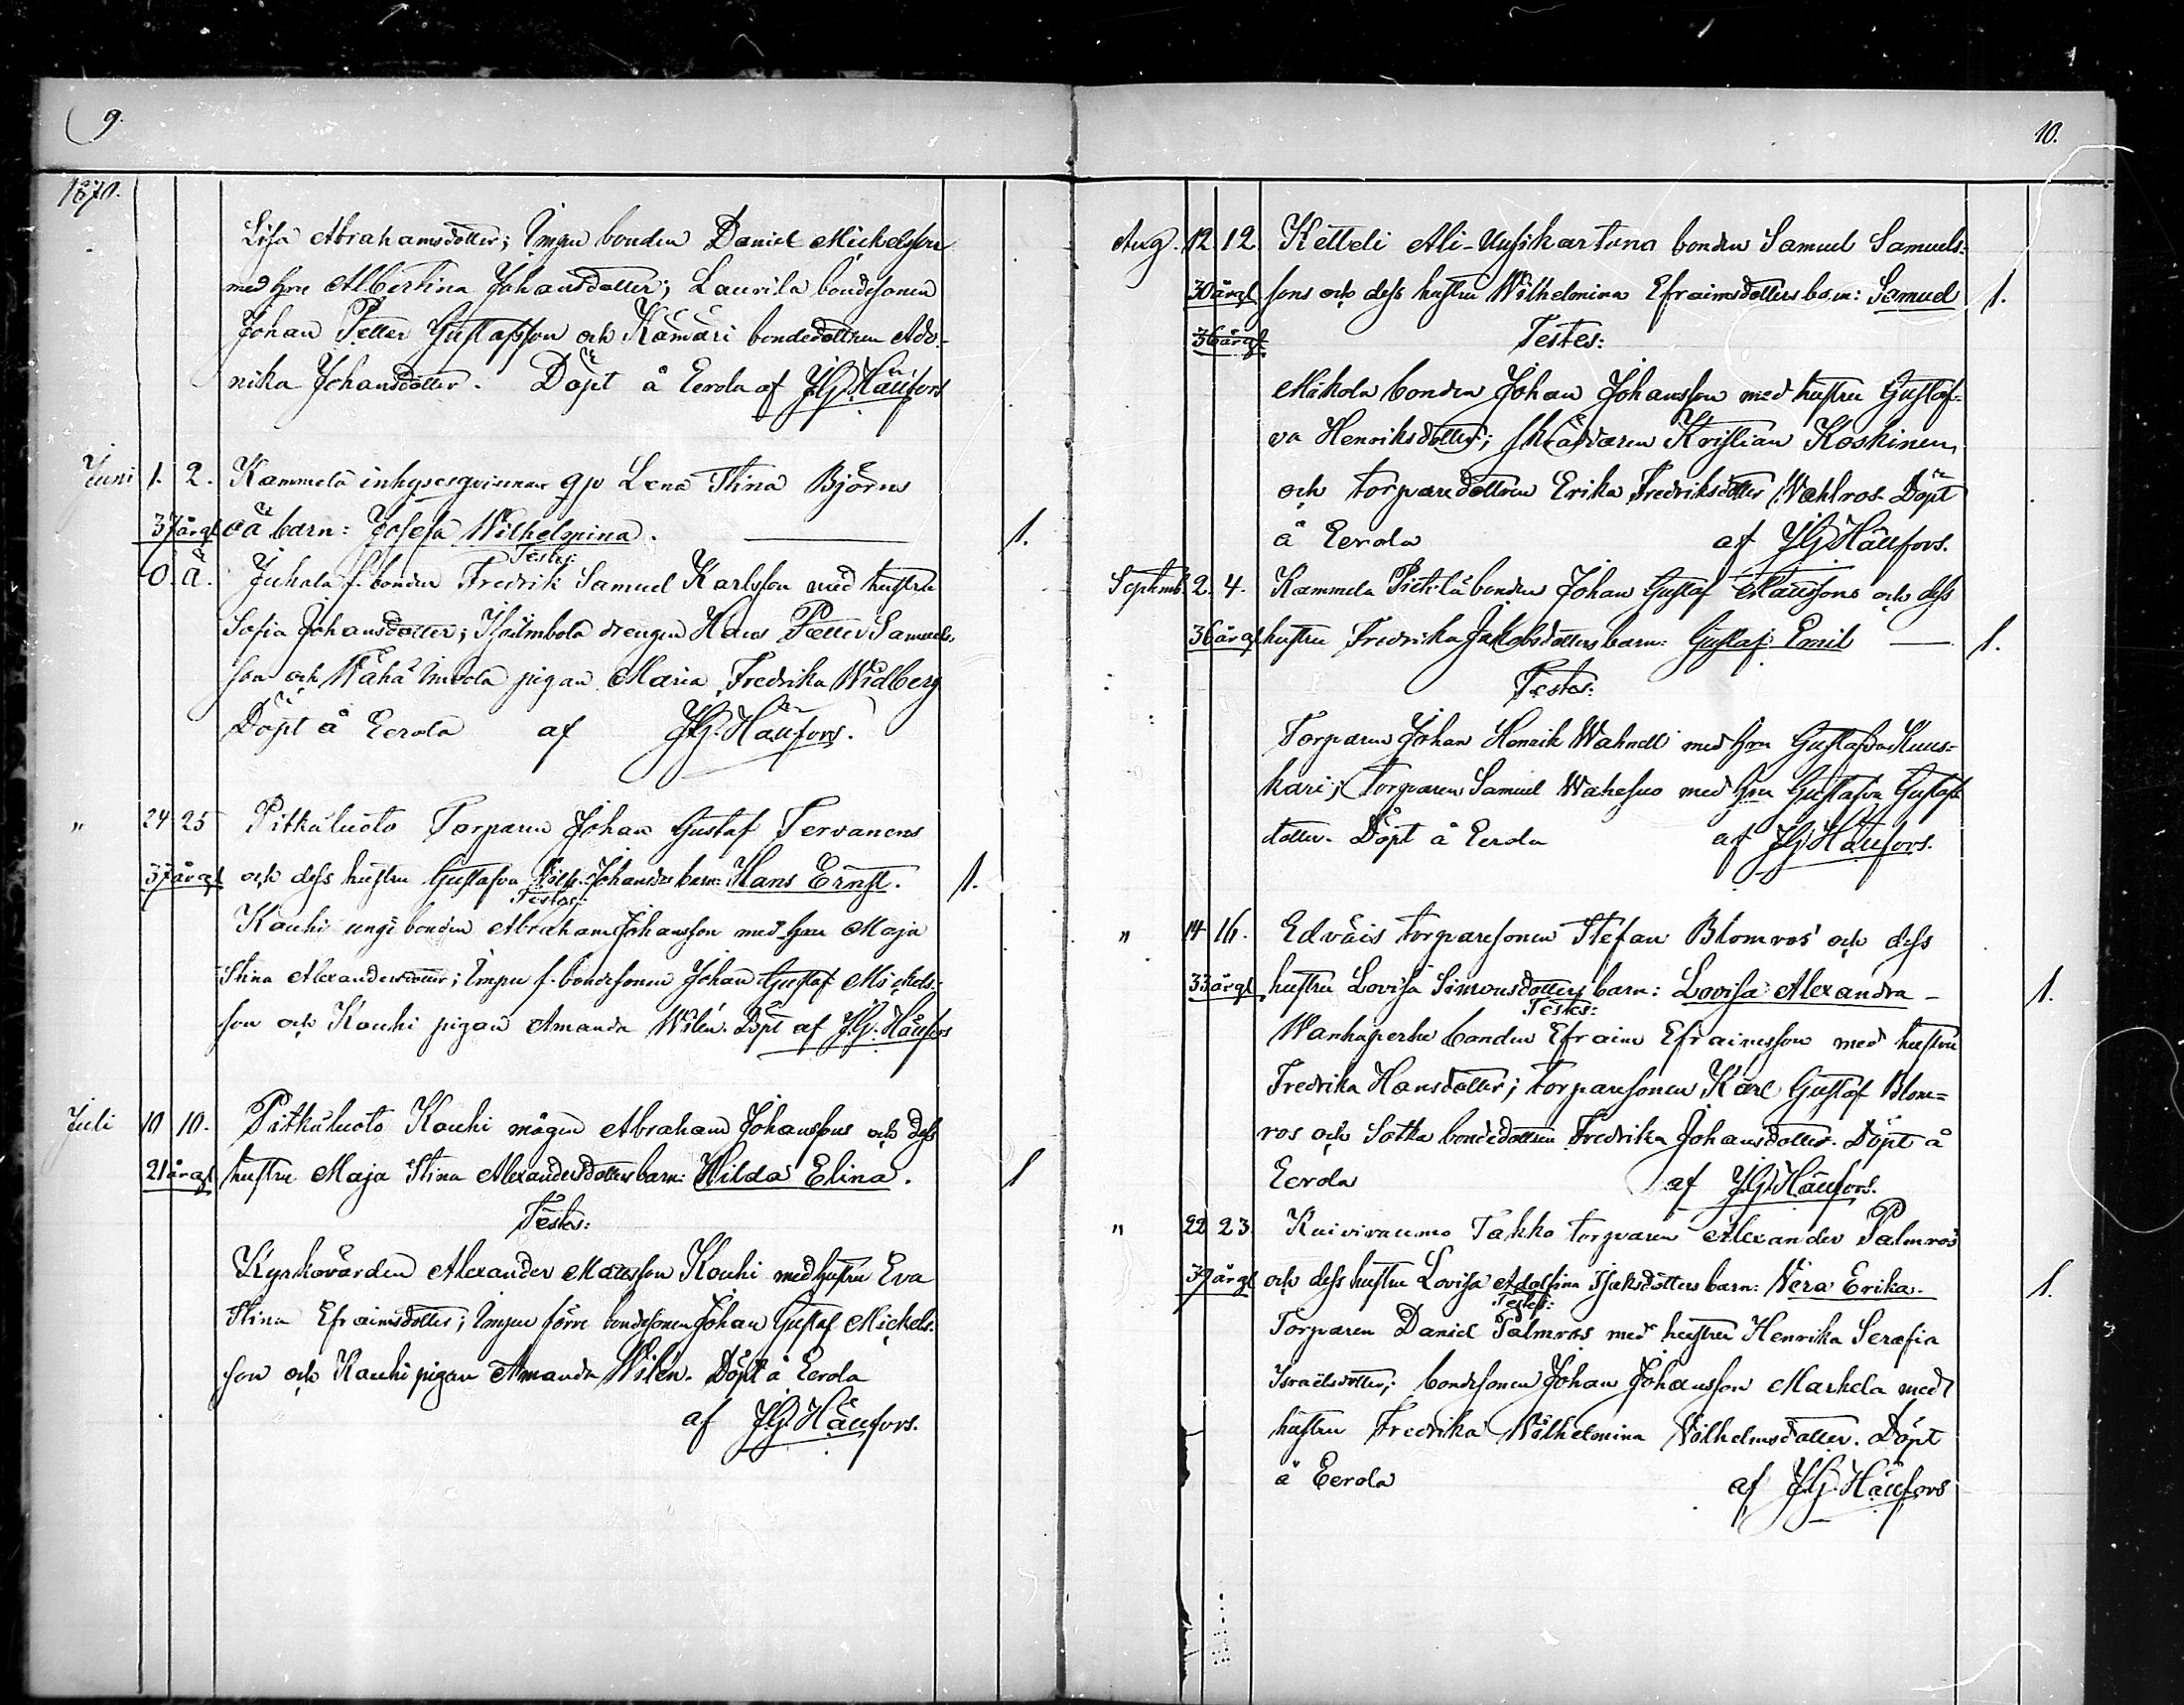 9.
1870.
Lisa Abrahamsdotter; Impu bonden Daniel Michelsson
med hru Albertina Johansdotter; Laurila bondesonen
Johan Petter Gustafsson och Kämäri bondedottren Adv-
nika Johansdotter. Döpt å Eerola af JG Häufors
Juni 1. 2. Kammela inhysesqvinnan gp Lena Stina Björns
37 årgl oä barn: Josefa Wilhelmina. 1.
O.Ä. Testes:
Juhala f. bonden Fredrik Samuel Karlsson med hustru
Sofia Johansdotter; drengen Hans Petter Samuels-
son och Wähä Impola pigan Maria Fredrika Widberg
Döpt å Eerola af JG. Häufors.
" 24 25 Pitkäluoto Torparen Johan Gustaf Tervanens
37 årgl och dess hustru Gustafva Johansdrs barn: Hans Ernst. 1.
Testes:
Kauhi unge bonden Abraham Johansson med hru Maja
Stina Alexandersdotter; Impu f. bondesonen Johan Gustaf Mickels-
son och Kouhi pigan Amanda Wilén. Döpt af JG. Häufors
Juli 10 10. Pitkäluoto Kouhi mågen Abraham Johanssons och dess
21 årgl hustru Maja Stina Alexandersdotters barn: Hilda Elina. 1
Testes:
Kyrkovärden Alexander Matsson Kouhi med hustru Eva
Stina Efraimsdotter; Impu förre bondesonen Johan Gustaf Mickels-
son och Kauhi pigan Amanda Wilén. Döpt å Eerola
af JG. Häufors.
10.
Aug. 12. 12. Ketteli Ali-Uusikartano bonden Samuel Samuels-
30 årgl sons och dess hustru Wilhelmina Efraimsdotters barn: Samuel 1.
36 årgl Testes:
Mikola bonden Johan Johansson med hustru Gustaf-
va Henriksdotter; skräddaren Kristian Koskinen
och torparedottren Erika Fredriksdotter Wahlros. Döpt
å Eerola af JG Häufors.
Septemb. 2. 4. Kammela Pietilä bonden Johan Gustaf Matssons och dess
36 årgl hustru Fredrika Jakobsdotters barn: Gustaf Emil 1.
Testes:
Torparen Johan Henrik Wahnell med hru Gustafva Kuus-
kari; torparen Samuel Wahesuo med hru Gustafva Gustafs
dotter. Döpt å Eerola af JG Häufors.
" 14 16. Edväis torparesonen Stefan Blomros och dess
33 årgl hustru Lovisa Simonsdotters barn: Lovisa Alexandra 1.
Testes:
Wanhaperhe bonden Efraim Efraimsson med hustru
Fredrika Hansdotter; torparesonen Karl Gustaf Blom-
ros och Sotka bondedottren Fredrika Johansdotter. Döpt å
Eerola af JG. Häufors.
" 22 23. Kuivirauma Takko torparen Alexander Palmros
39 årgl och dess hustru Lovisa Adolfina Isaksdotters barn: Vera Erika. 1.
Testes:
Torparen Daniel Palmros med hustru Henrika Serafia
Israelsdotter; bondesonen Johan Johansson Markela med
hustru Fredrika Wilhelmina Wilhelmsdotter. Döpt
å Eerola af JG. Häufors